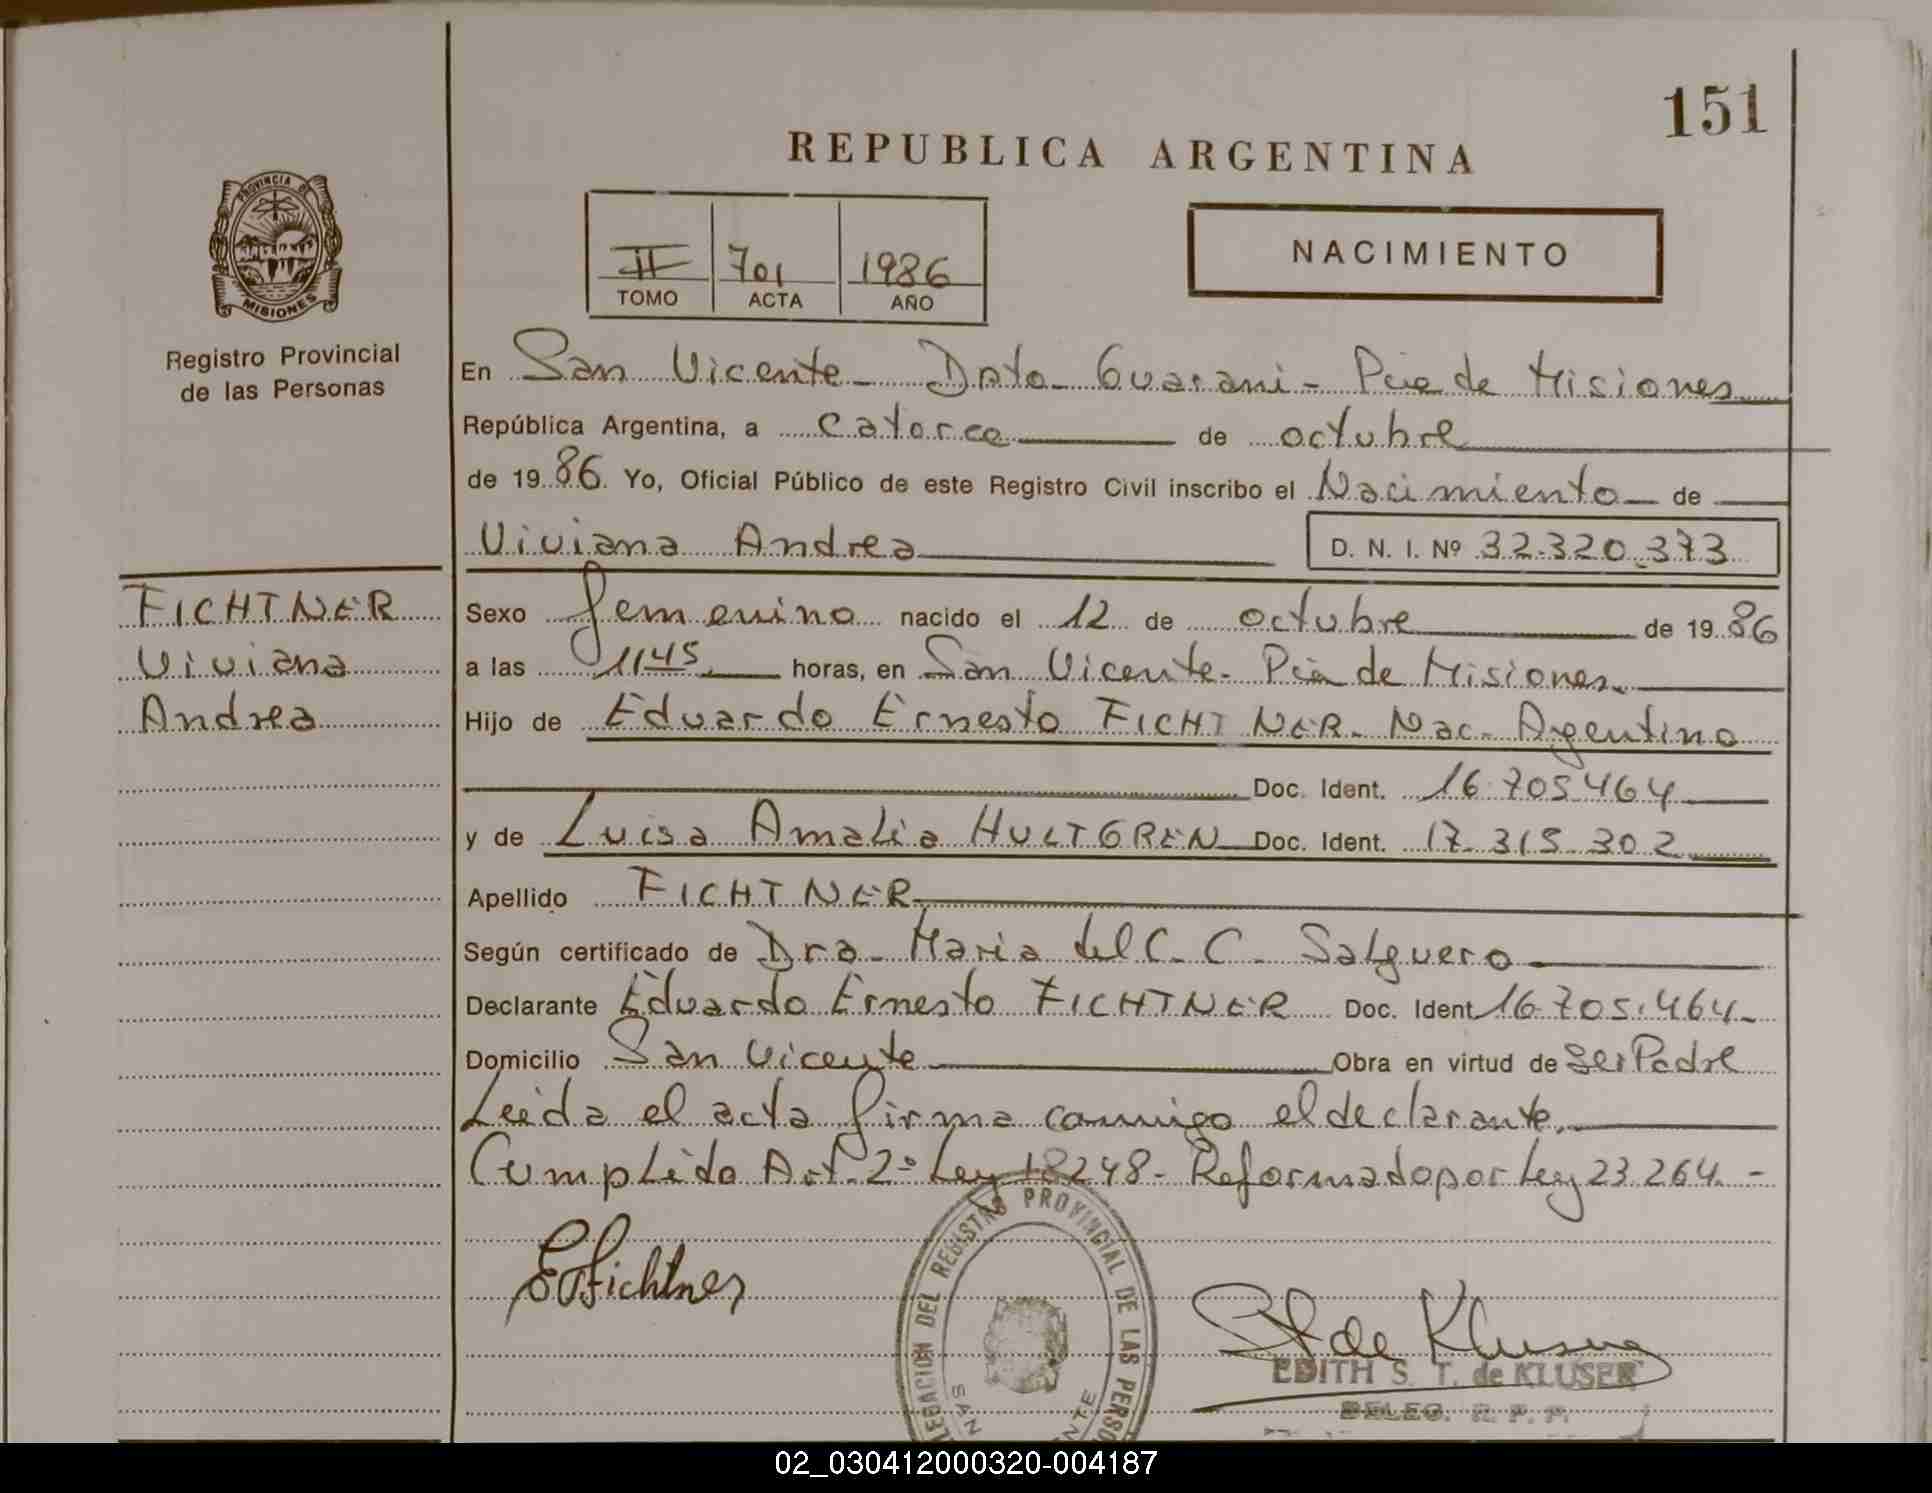 151
REPUBLICA ARGENTINA
PROVINCIA DE
MISIONES
Registro Provincial
de las Personas
II 701 1986
TOMO ACTA AÑO
NACIMIENTO
En San Vicente - Dpto - Guarani - Pcia de Misiones
República Argentina, a catorce de octubre
de 1986. Yo, Oficial Público de este Registro Civil inscribo el Nacimiento de
Viviana Andrea D. N. I. Nº 32.320.373
FICHTNER
Viviana
Andrea
Sexo femenino nacido el 12 de octubre de 1986
a las 1145 horas, en San Vicente - Pcia de Misiones.
Hijo de Eduardo Ernesto FICHTNER - Nac - Argentino
Doc. Ident. 16.705.464
y de Luisa Amalia HULTGREN Doc. Ident. 17.315.302
Apellido FICHTNER
Según certificado de Dra - Maria del C. C. Salguero
Declarante Eduardo Ernesto FICHTNER Doc. Ident 16.705.464 -
Domicilio San Vicente Obra en virtud de ser Padre
Leida el acta firma conmigo el declarante.
Cumplido Art. 2º Ley 18248 - Reformado por Ley 23.264. -
E Fichtner
DELEGACION DEL REGISTRO PROVINCIAL DE LAS PERSO
SAN
NTE
de Kluser
EDITH S. T. de KLUSER
DELEG. R. P. P.
02_030412000320-004187